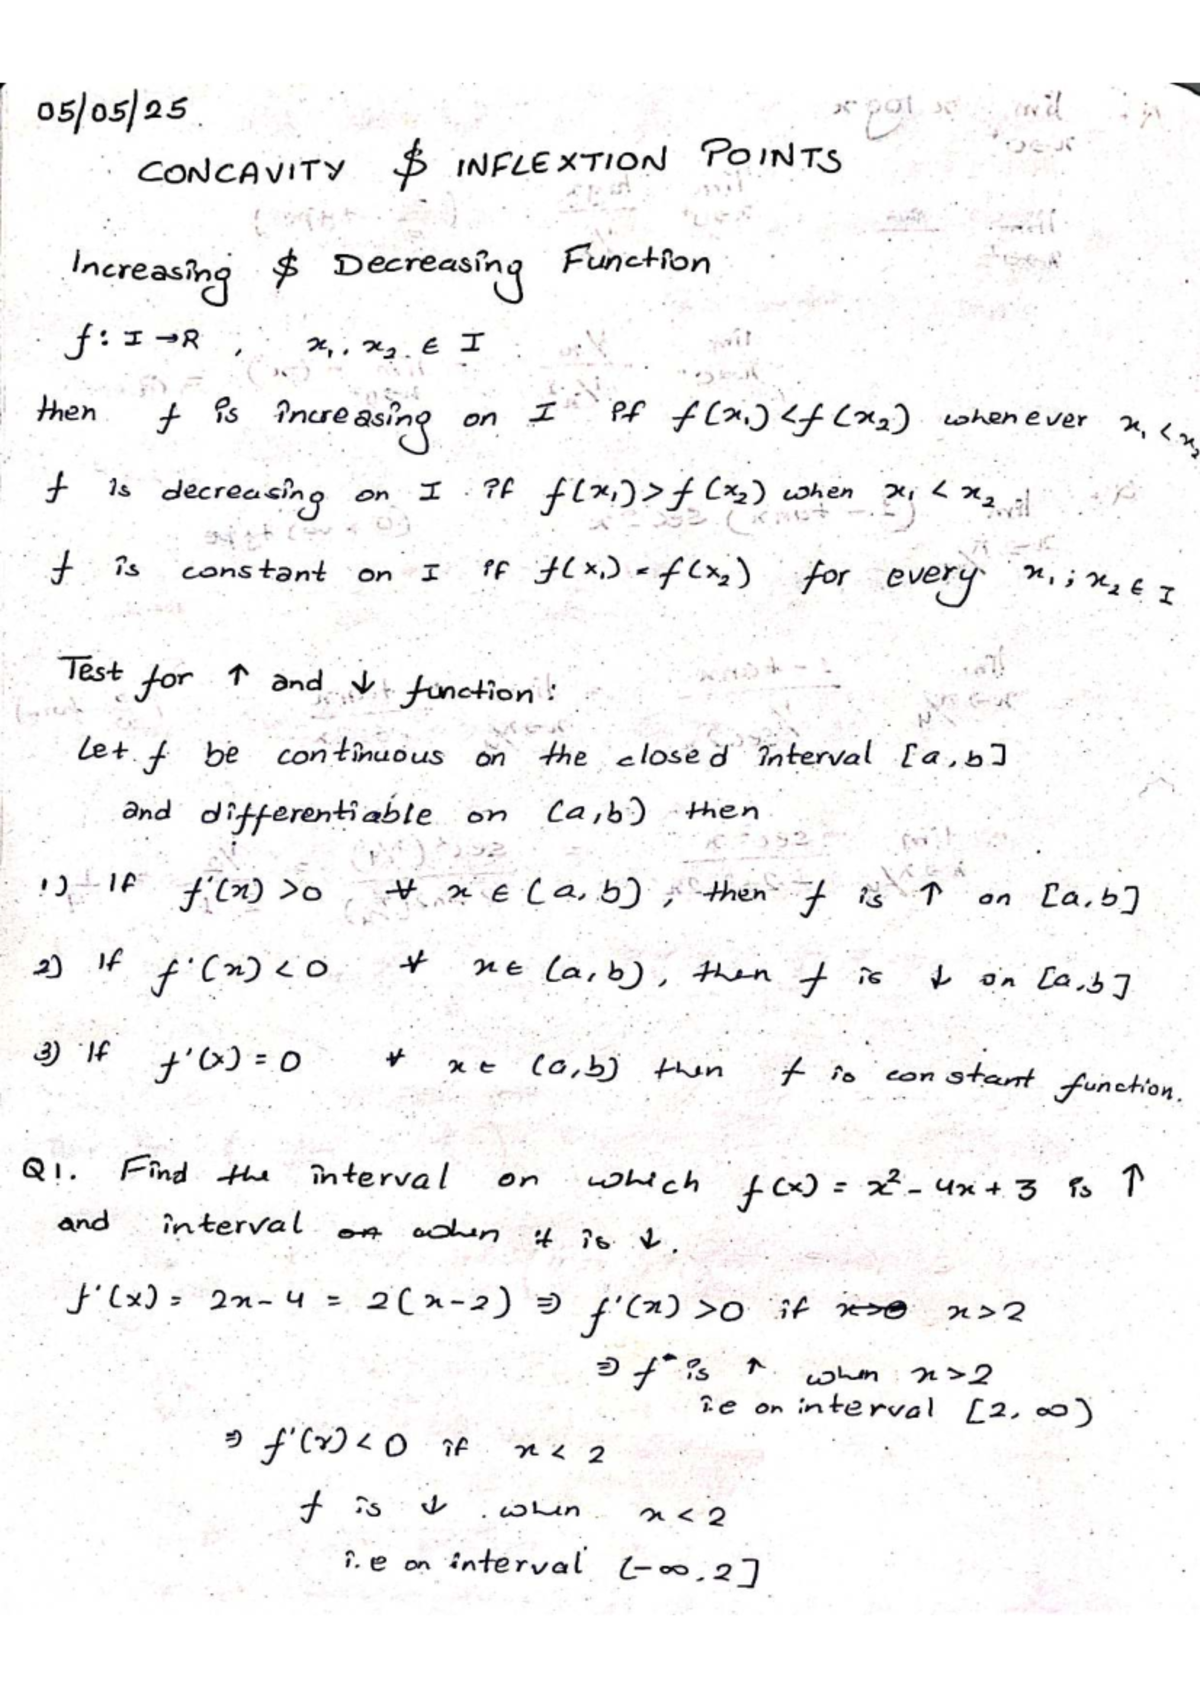 05/05/25
CONCAVITY $ INFLEXTION POINTS
Increasing $ Decreasing Function
f: I → R , x₁, x₂ ∈ I
then f is increasing on I if f(x₁) < f(x₂) whenever x₁ < x₂
f is decreasing on I if f(x₁) > f(x₂) when x₁ < x₂
f is constant on I if f(x₁) = f(x₂) for every x₁ ; x₂ ∈ I
Test for ↑ and ↓ function :
Let f be continuous on the closed interval [a, b]
and differentiable on (a, b) then
1) If f'(x) > 0 ∀ x ∈ (a, b) , then f is ↑ on [a, b]
2) If f'(x) < 0 ∀ x ∈ (a, b), then f is ↓ on [a, b]
3) If f'(x) = 0 ∀ x ∈ (a, b) then f is constant function.
Q1. Find the interval on which f(x) = x² - 4x + 3 is ↑
and interval on when it is ↓.
f'(x) = 2x - 4 = 2(x - 2) ⇒ f'(x) > 0 if x>0 x > 2
⇒ f is ↑ when x > 2
i.e on interval [2, ∞)
⇒ f'(x) < 0 if x < 2
f is ↓ when x < 2
i.e on interval (-∞, 2]